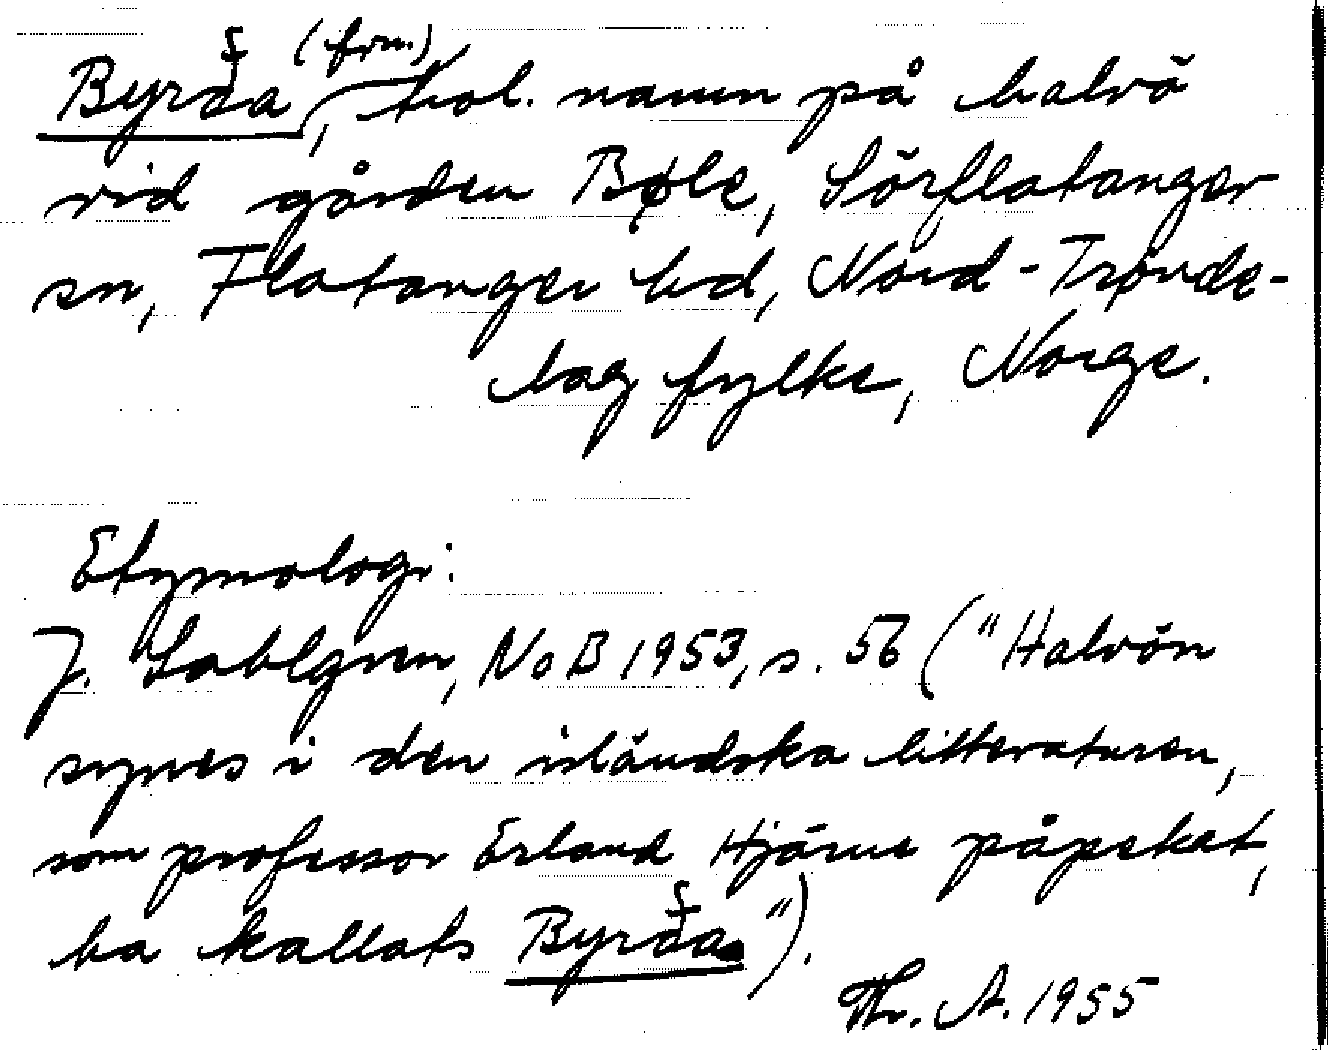 Byrða (frn.), trol. namn på halvö
vid gården Bøle, Sörflatanger
sn, Flatanger hd, Nord-Trønde-
lag fylke, Norge.
Etymologi:
J. Sahlgren, NoB 1953, s. 56 ("Halvön
synes i den isländska litteraturen,
som professor Erland Hjärne påpekat,
ha kallats Byrða").
Thr. A. 1955